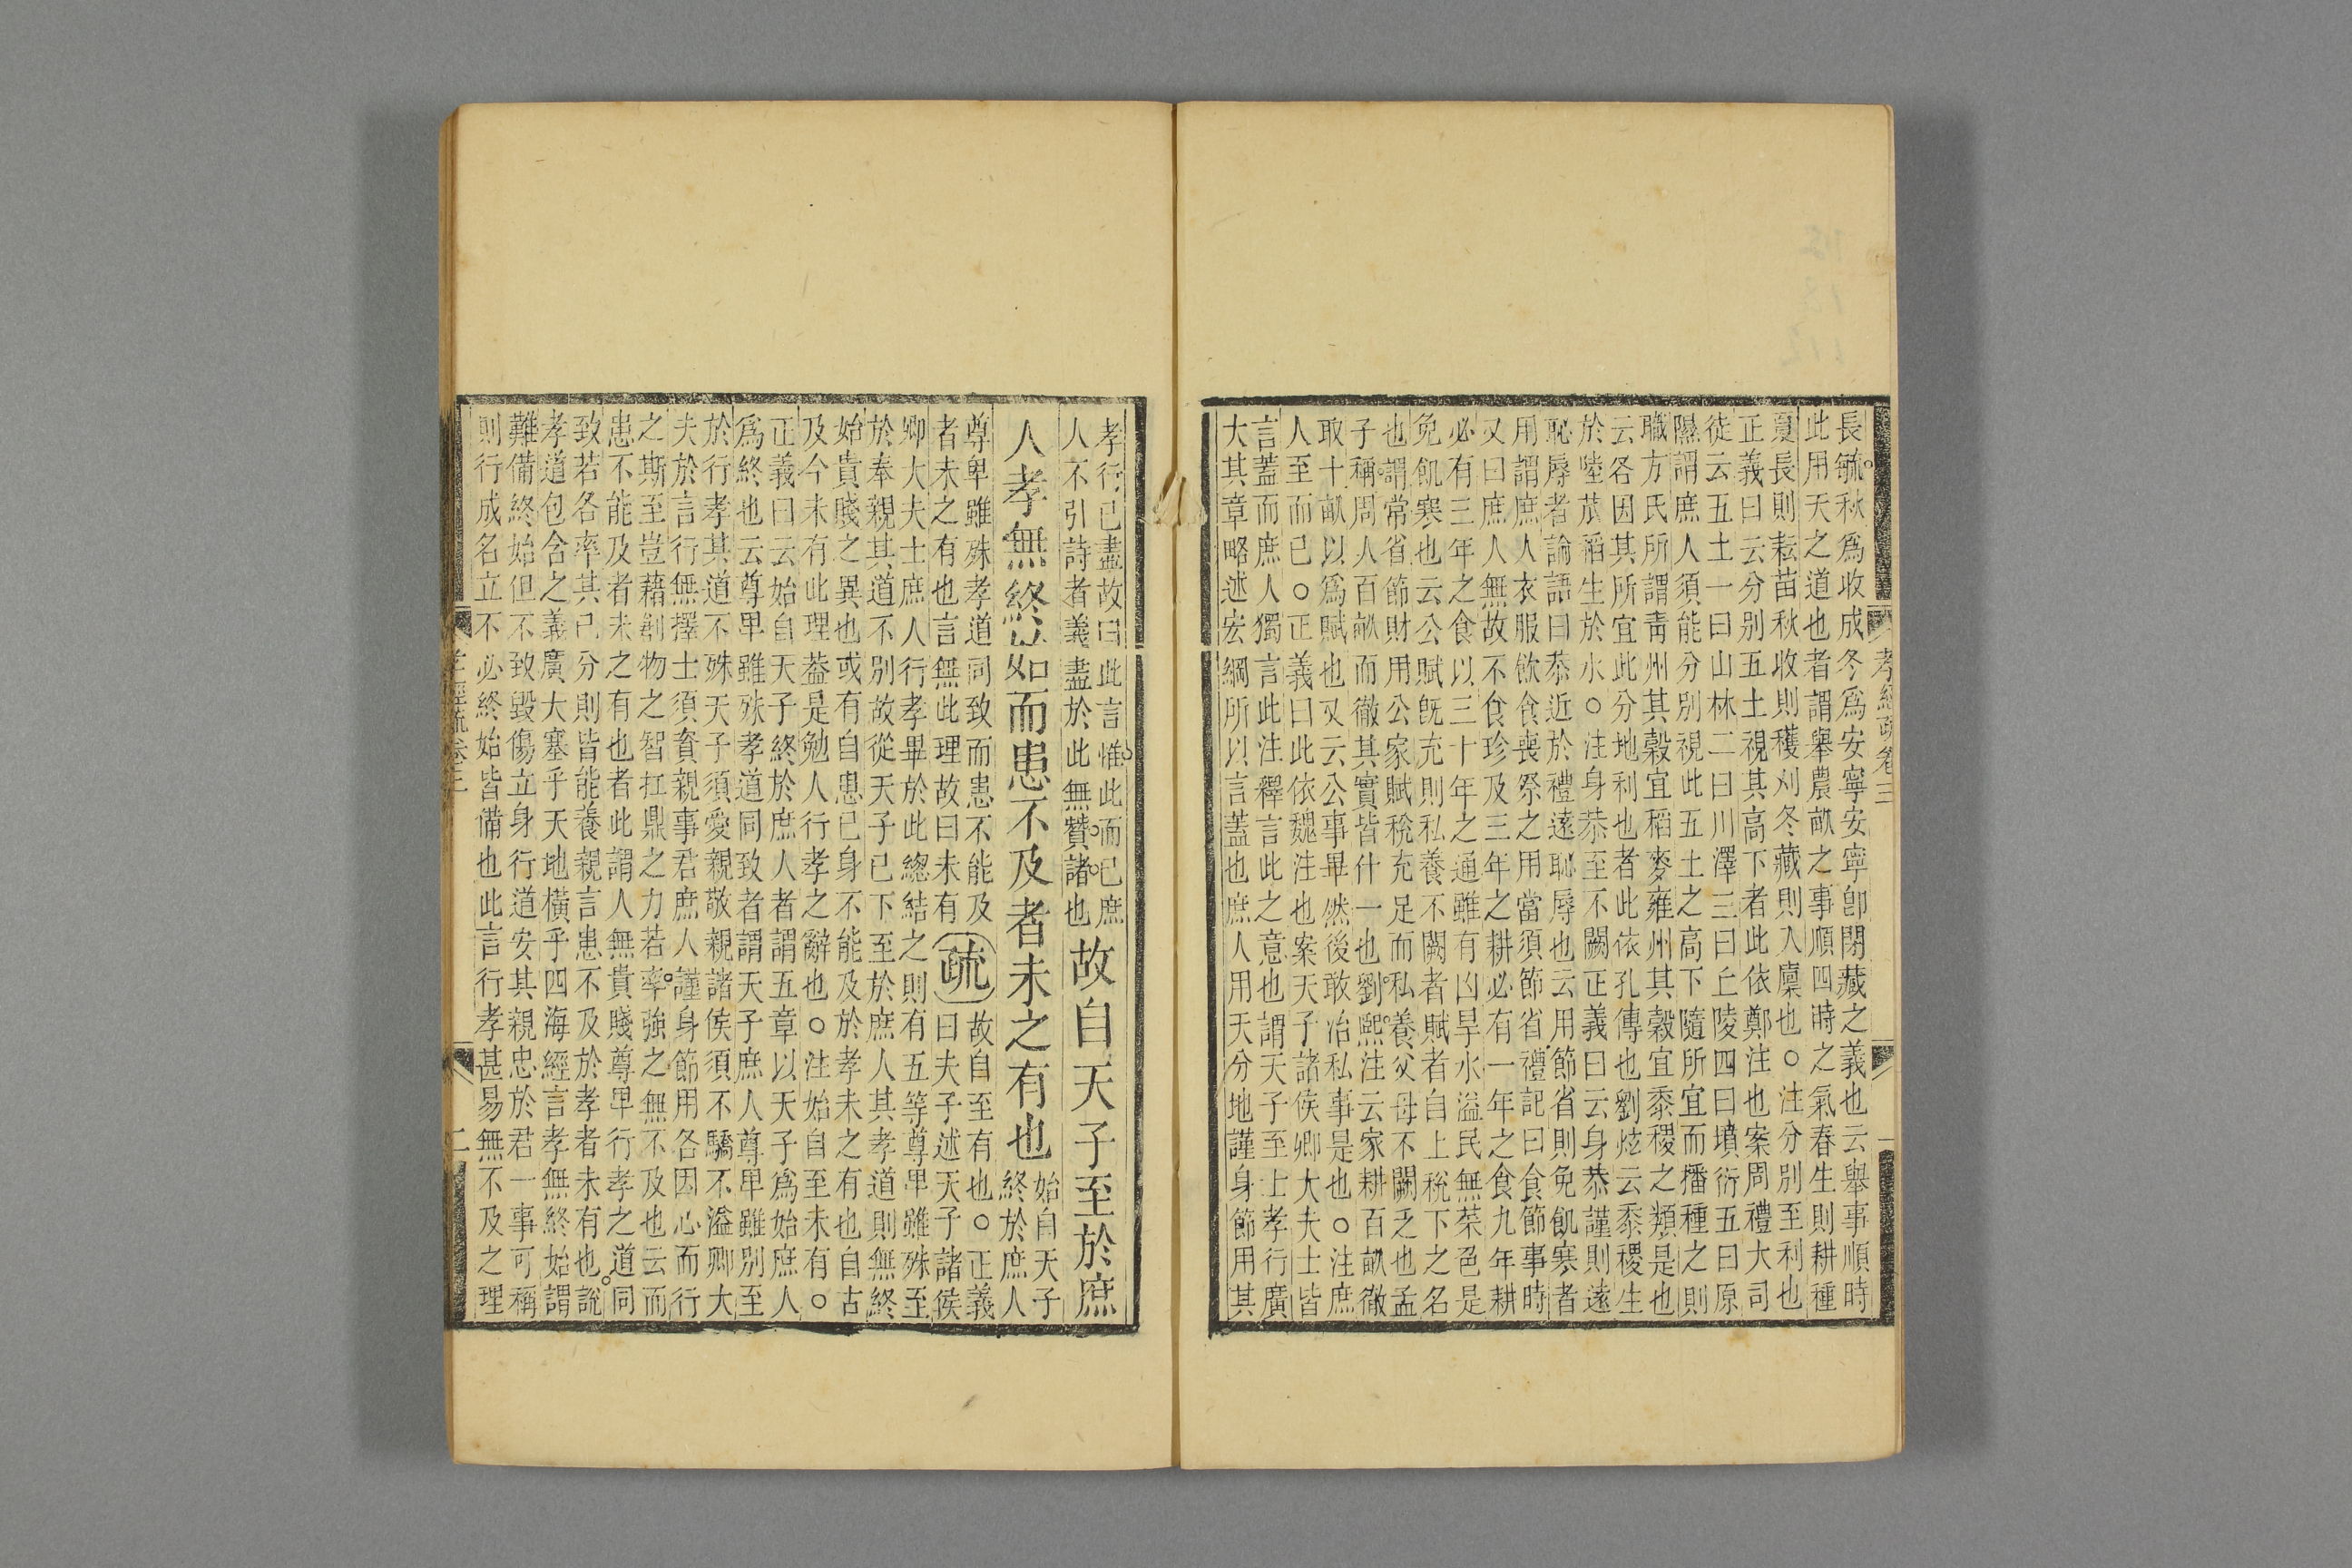 孝經疏卷三
一
長毓秋爲收成冬爲安寧安寧卽閉藏之義也云舉事順時
此用天之道也者謂舉農畝之事順四時之氣春生則耕種
夏長則耘苗秋收則穫刈冬藏則入廩也○注分別至利也
正義曰云分別五土視其高下者此依鄭注也案周禮大司
徒云五土一曰山林二曰川澤三曰丘陵四曰墳衍五曰原
隰謂庶人須能分別視此五土之高下隨所宜而播種之則
職方氏所謂靑州其穀宜稻麥雍州其穀宜黍稷之類是也
云各因其所宜此分地利也者此依孔傳也劉炫云黍稷生
於陸苽稻生於水○注身恭至不闕正義曰云身恭謹則遠
恥辱者論語曰恭近於禮遠恥辱也云用節省則免飢寒者
用謂庶人衣服飲食喪祭之用當須節省禮記曰食節事時
又曰庶人無故不食珍及三年之耕必有一年之食九年耕
必有三年之食以三十年之通雖有凶旱水溢民無菜色是
免飢寒也云公賦旣充則私養不闕者賦者自上稅下之名
也謂常省節財用公家賦稅充足而私養父母不闕乏也孟
子稱周人百畝而徹其實皆什一也劉熙注云家耕百畝徹
取十畝以爲賦也又云公事畢然後敢治私事是也○注庶
人至而已○正義曰此依魏注也案天子諸侯卿大夫士皆
言蓋而庶人獨言此注釋言此之意也謂天子至士孝行廣
大其章略述宏綱所以言蓋也庶人用天分地謹身節用其
孝行已盡故曰此言惟此而已庶
人不引詩者義盡於此無贊諸也
故自天子至於庶
人孝無終始而患不及者未之有也
始自天子
終於庶人
尊卑雖殊孝道同致而患不能及
者未之有也言無此理故曰未有
疏
故自至有也○正義
曰夫子述天子諸侯
卿大夫士庶人行孝畢於此總結之則有五等尊卑雖殊至
於奉親其道不別故從天子已下至於庶人其孝道則無終
始貴賤之異也或有自患已身不能及於孝未之有也自古
及今未有此理蓋是勉人行孝之辭也○注始自至未有○
正義曰云始自天子終於庶人者謂五章以天子爲始庶人
爲終也云尊卑雖殊孝道同致者謂天子庶人尊卑雖別至
於行孝其道不殊天子須愛親敬親諸侯須不驕不溢卿大
夫於言行無擇士須資親事君庶人謹身節用各因心而行
之斯至豈藉創物之智扛鼎之力若率強之無不及也云而
患不能及者未之有也者此謂人無貴賤尊卑行孝之道同
致若各率其己分則皆能養親言患不及於孝者未有也說
孝道包含之義廣大塞乎天地橫乎四海經言孝無終始謂
難備終始但不致毀傷立身行道安其親忠於君一事可稱
則行成名立不必終始皆備也此言行孝甚易無不及之理
孝經疏卷三
二